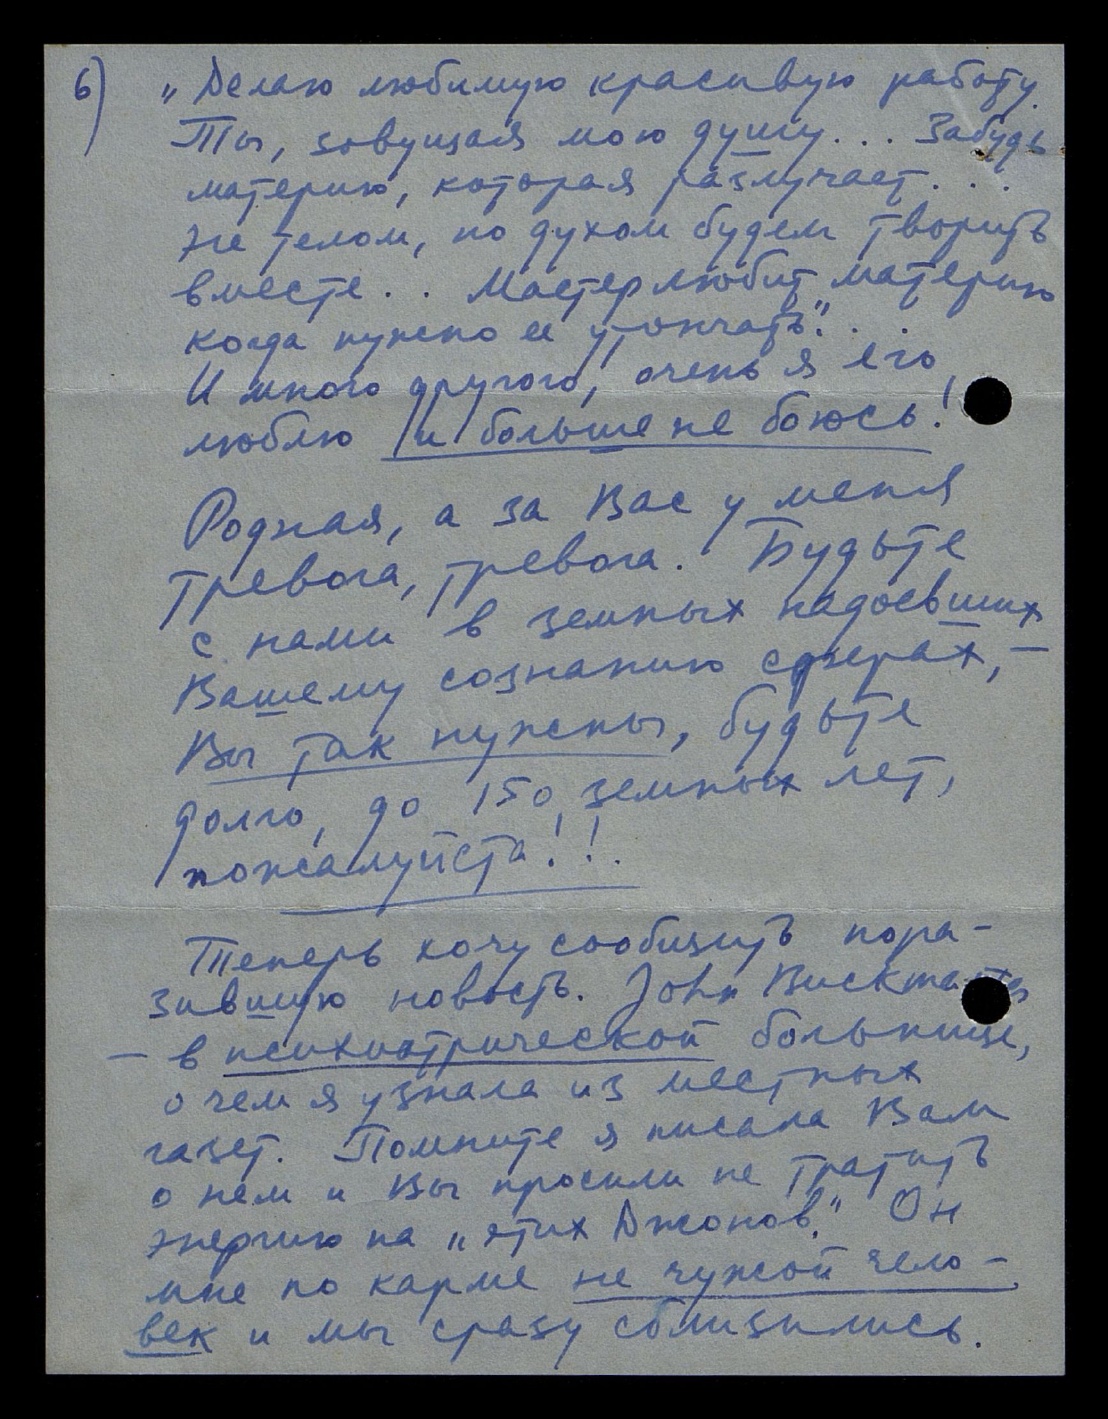 6) „Делаю любимую красивую работу.
Ты, зовущая мою душу... Забудь
материю, которая разлучает...
Не телом, но духом будем творить
вместе.. Мастер любит материю
когда нужно ее утончать"...
И много другого, очень я его
люблю и больше не боюсь!
Родная, а за Вас у меня
тревога, тревога. Будьте
с нами в земных надоевших
Вашему сознанию сферах, –
Вы так нужны, будьте
долго, до 150 земных лет,
пожалуйста!!.
Теперь хочу сообщить пора-
зившую новость. John
– в психиатрической больнице,
о чем я узнала из местных
газет. Помните я писала Вам
о нем и Вы просили не тратить
энергию на „этих Джонов." Он
мне по карме не чужой чело-
век и мы сразу сблизились.